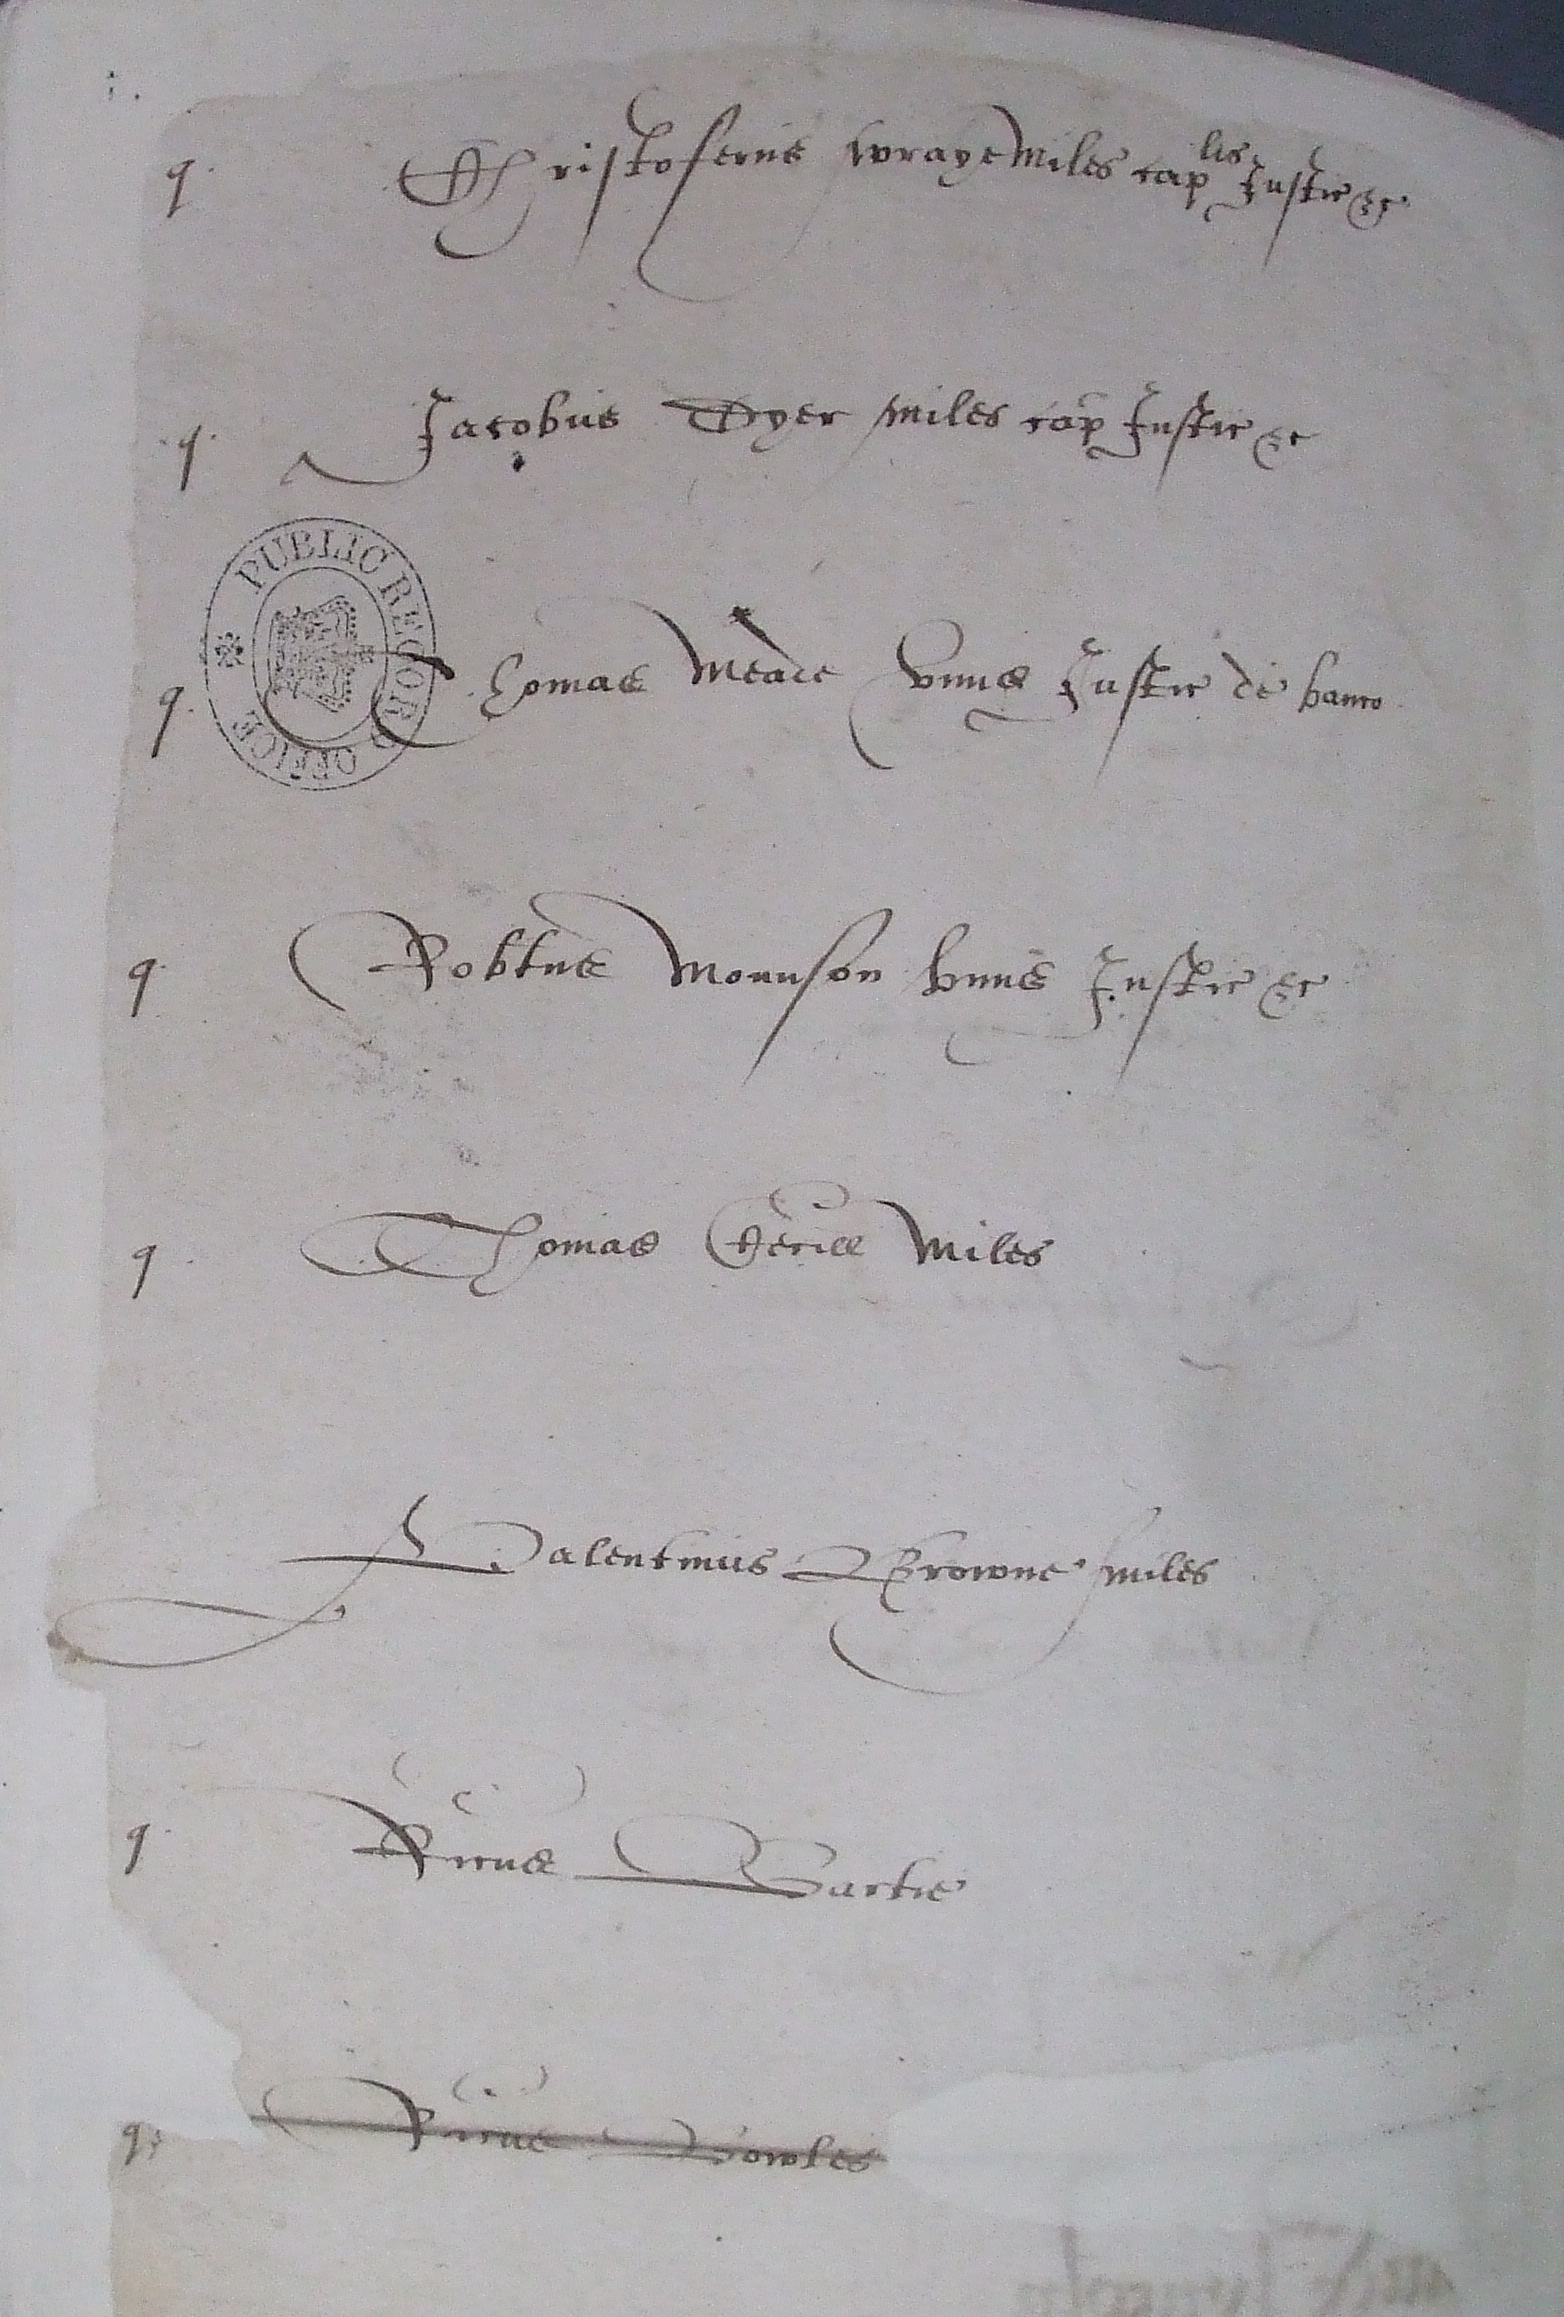 q. Christoferus Wraye Miles cap lis Justic &c
q. Jacobus Dyer miles cap Justic &c
PUBLIC RECORD OFFICE
q. Thomas Meade unus Justic de banco
q. Robtus Mounson unus Justic &c
q. Thomas Cecill Miles
Valentinus Browne miles
q. Ricus Bartie
q. Ricus Bowles